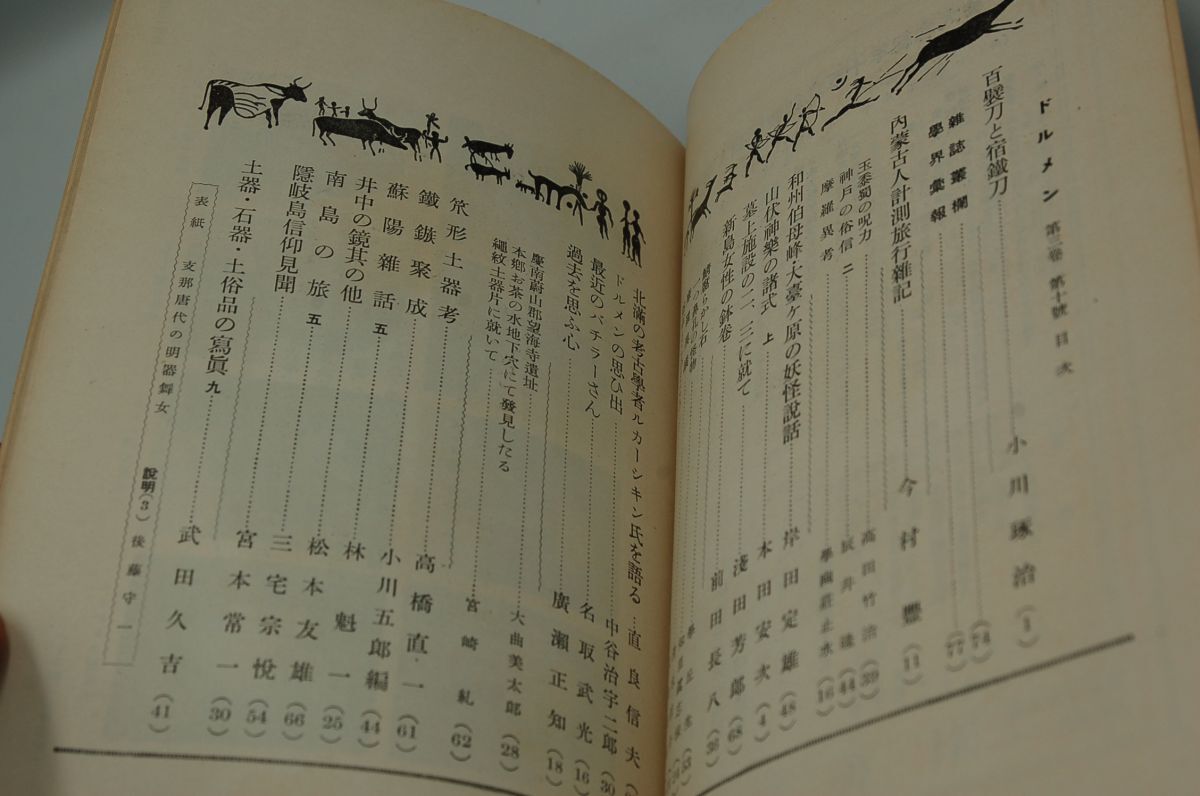 ドルメン 第三卷 第十號 目次
百襲刀と宿鐵刀 小川琢治 (1)
雜誌叢欄 (74)
學界彙報 (77)
內蒙古人計測旅行雜記 今村豐 (11)
玉蜀黍の呪力 高田竹治 (39)
神戶の俗信 二 (44)
摩羅異考 (16)
和州伯母峰・大臺ケ原の妖怪說話 岸田定雄 (48)
山伏神樂の諸式 上 本田安次 (4)
墓上施設の二、三に就て 淺田芳郎 (68)
新島女性の鉢卷 前田長八 (36)
北滿の考古學者ルカーシキン氏を語る 直良信夫
ドルメンの思ひ出 中谷治宇二郎 (30)
最近のバチラーさん 名取武光 (16)
過去を思ふ心 廣瀨正知 (18)
慶南蔚山郡望海寺遺址 大曲美太郎 (28)
本鄉お茶の水地下穴にて發見したる
繩紋土器片に就いて 宮崎糺 (62)
笊形土器考 高橋直一 (61)
鐵鏃聚成 小川五郎編 (44)
蘇陽雜話 五 林魁一 (25)
井中の鏡其の他 松本友雄 (66)
南島の旅 五 三宅宗悅 (54)
隱岐島信仰見聞 宮本常一 (30)
土器・石器・土俗品の寫眞 九 武田久吉 (41)
表紙 支那唐代の明器舞女 說明(3) 後藤守一